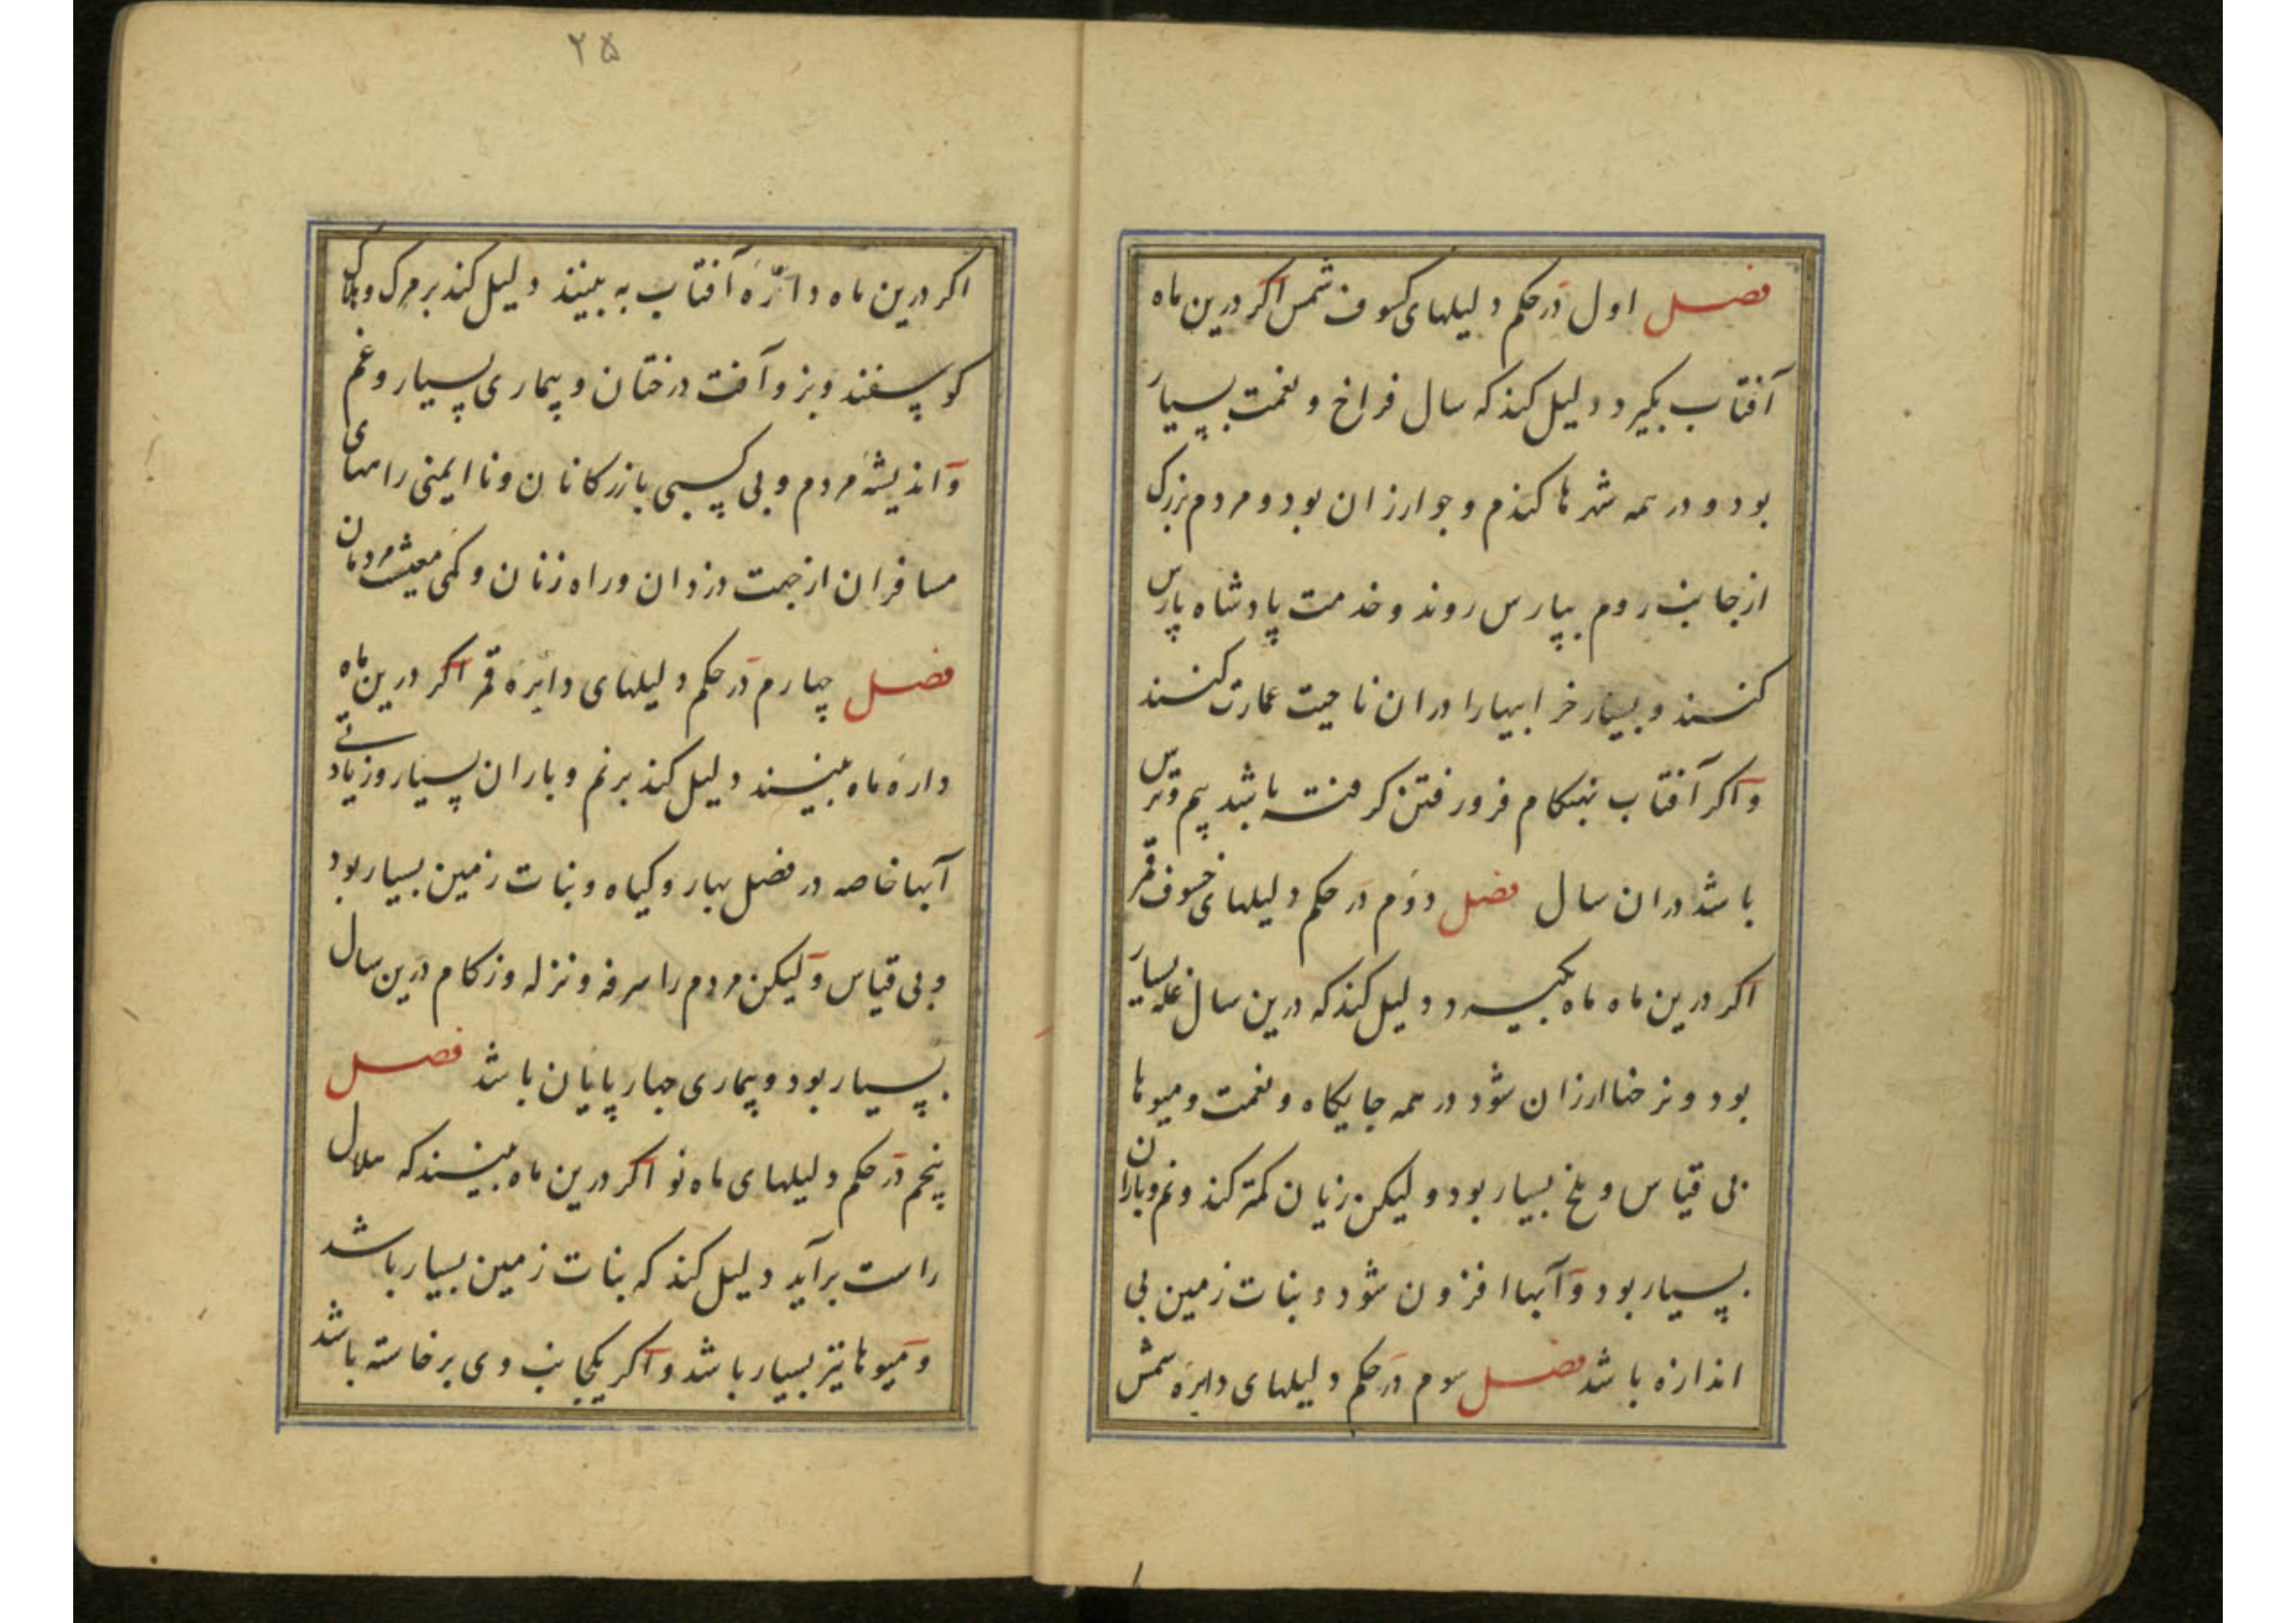 فصل اول در حکم دلیلهای کسوف شمس اکر درین ماه
آفتاب بکیرد دلیل کند که سال فراخ و نعمت بسیار
بود و در همه شهرها کندم و جو ارزان بود و مردم بزرک
از جانب روم بپارس روند و خدمت پادشاه پارس
کنند و بسیار خرابیها را دران ناحیت عمارت کنند
و اکر آفتاب بهنکام فرو رفتن کرفته باشد بیم و ترس
باشد دران سال فصل دوم در حکم دلیلهای خسوف قمر
اکر درین ماه ماه بکیرد دلیل کند که درین سال غله بسیار
بود و نرخها ارزان شود در همه جایکاه و نعمت و میوها
بی قیاس و ملخ بسیار بود و لیکن زیان کمتر کند و نم و باران
بسیار بود و آبها افزون شود و نبات زمین بی
اندازه باشد فصل سوم در حکم دلیلهای دایره شمس
۲۵
اکر درین ماه دائره آفتاب به بینند دلیل کند بر مرک و هلاک
کوسفند و بز و آفت درختان و بیماری بسیار و غم
و اندیشه مردم و بی کسبی بازرکانان و نا ایمنی راههای
مسافران از جهت دزدان و راه زنان و کمی معیشت مردمان
فصل چهارم در حکم دلیلهای دایره قمر اکر درین ماه
داره ماه بینند دلیل کند بر نم و باران بسیار و زیادتی
آبها خاصه در فصل بهار و کیاه و نبات زمین بسیار بود
و بی قیاس و لیکن مردم را سرفه و نزله و زکام درین سال
بسیار بود و بیماری چهار پایان باشد فصل
پنجم در حکم دلیلهای ماه نو اکر درین ماه بینند که هلال
راست برآید دلیل کند که نبات زمین بسیار باشد
و میوها نیز بسیار باشد و اکر یکجانب وی برخاسته باشد